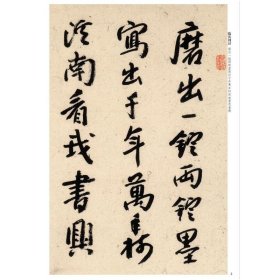 磨出一錠兩錠墨
寫出千年萬年樹
南看我書興